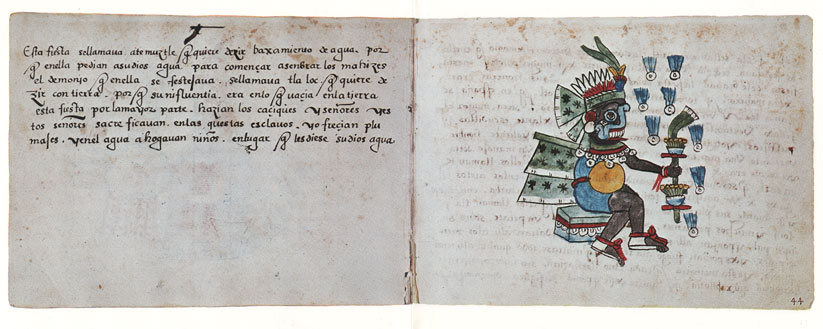 Esta fiesta sellamaua atemuztle / q̃ quiere dezir baxamiento de agua. por
q̃ enella pedian asudios agua. para començar asenbrar los mahizes
el demonjo / q̃ enella se festejava. sellamaua tlaloc / q̃ quiere de
zir con tierra. por / q̃ su influentia. era enlo / q̃ naçia / enla tierra
esta fiesta por lamayor parte. hazian los caçiques yseñores yes
tos señores sacre ficauan. enlas questas esclauos. yofreçian plu
majes. yenel agua ahogauan niños. enlugar / q̃ lesdiese sudios agua
44